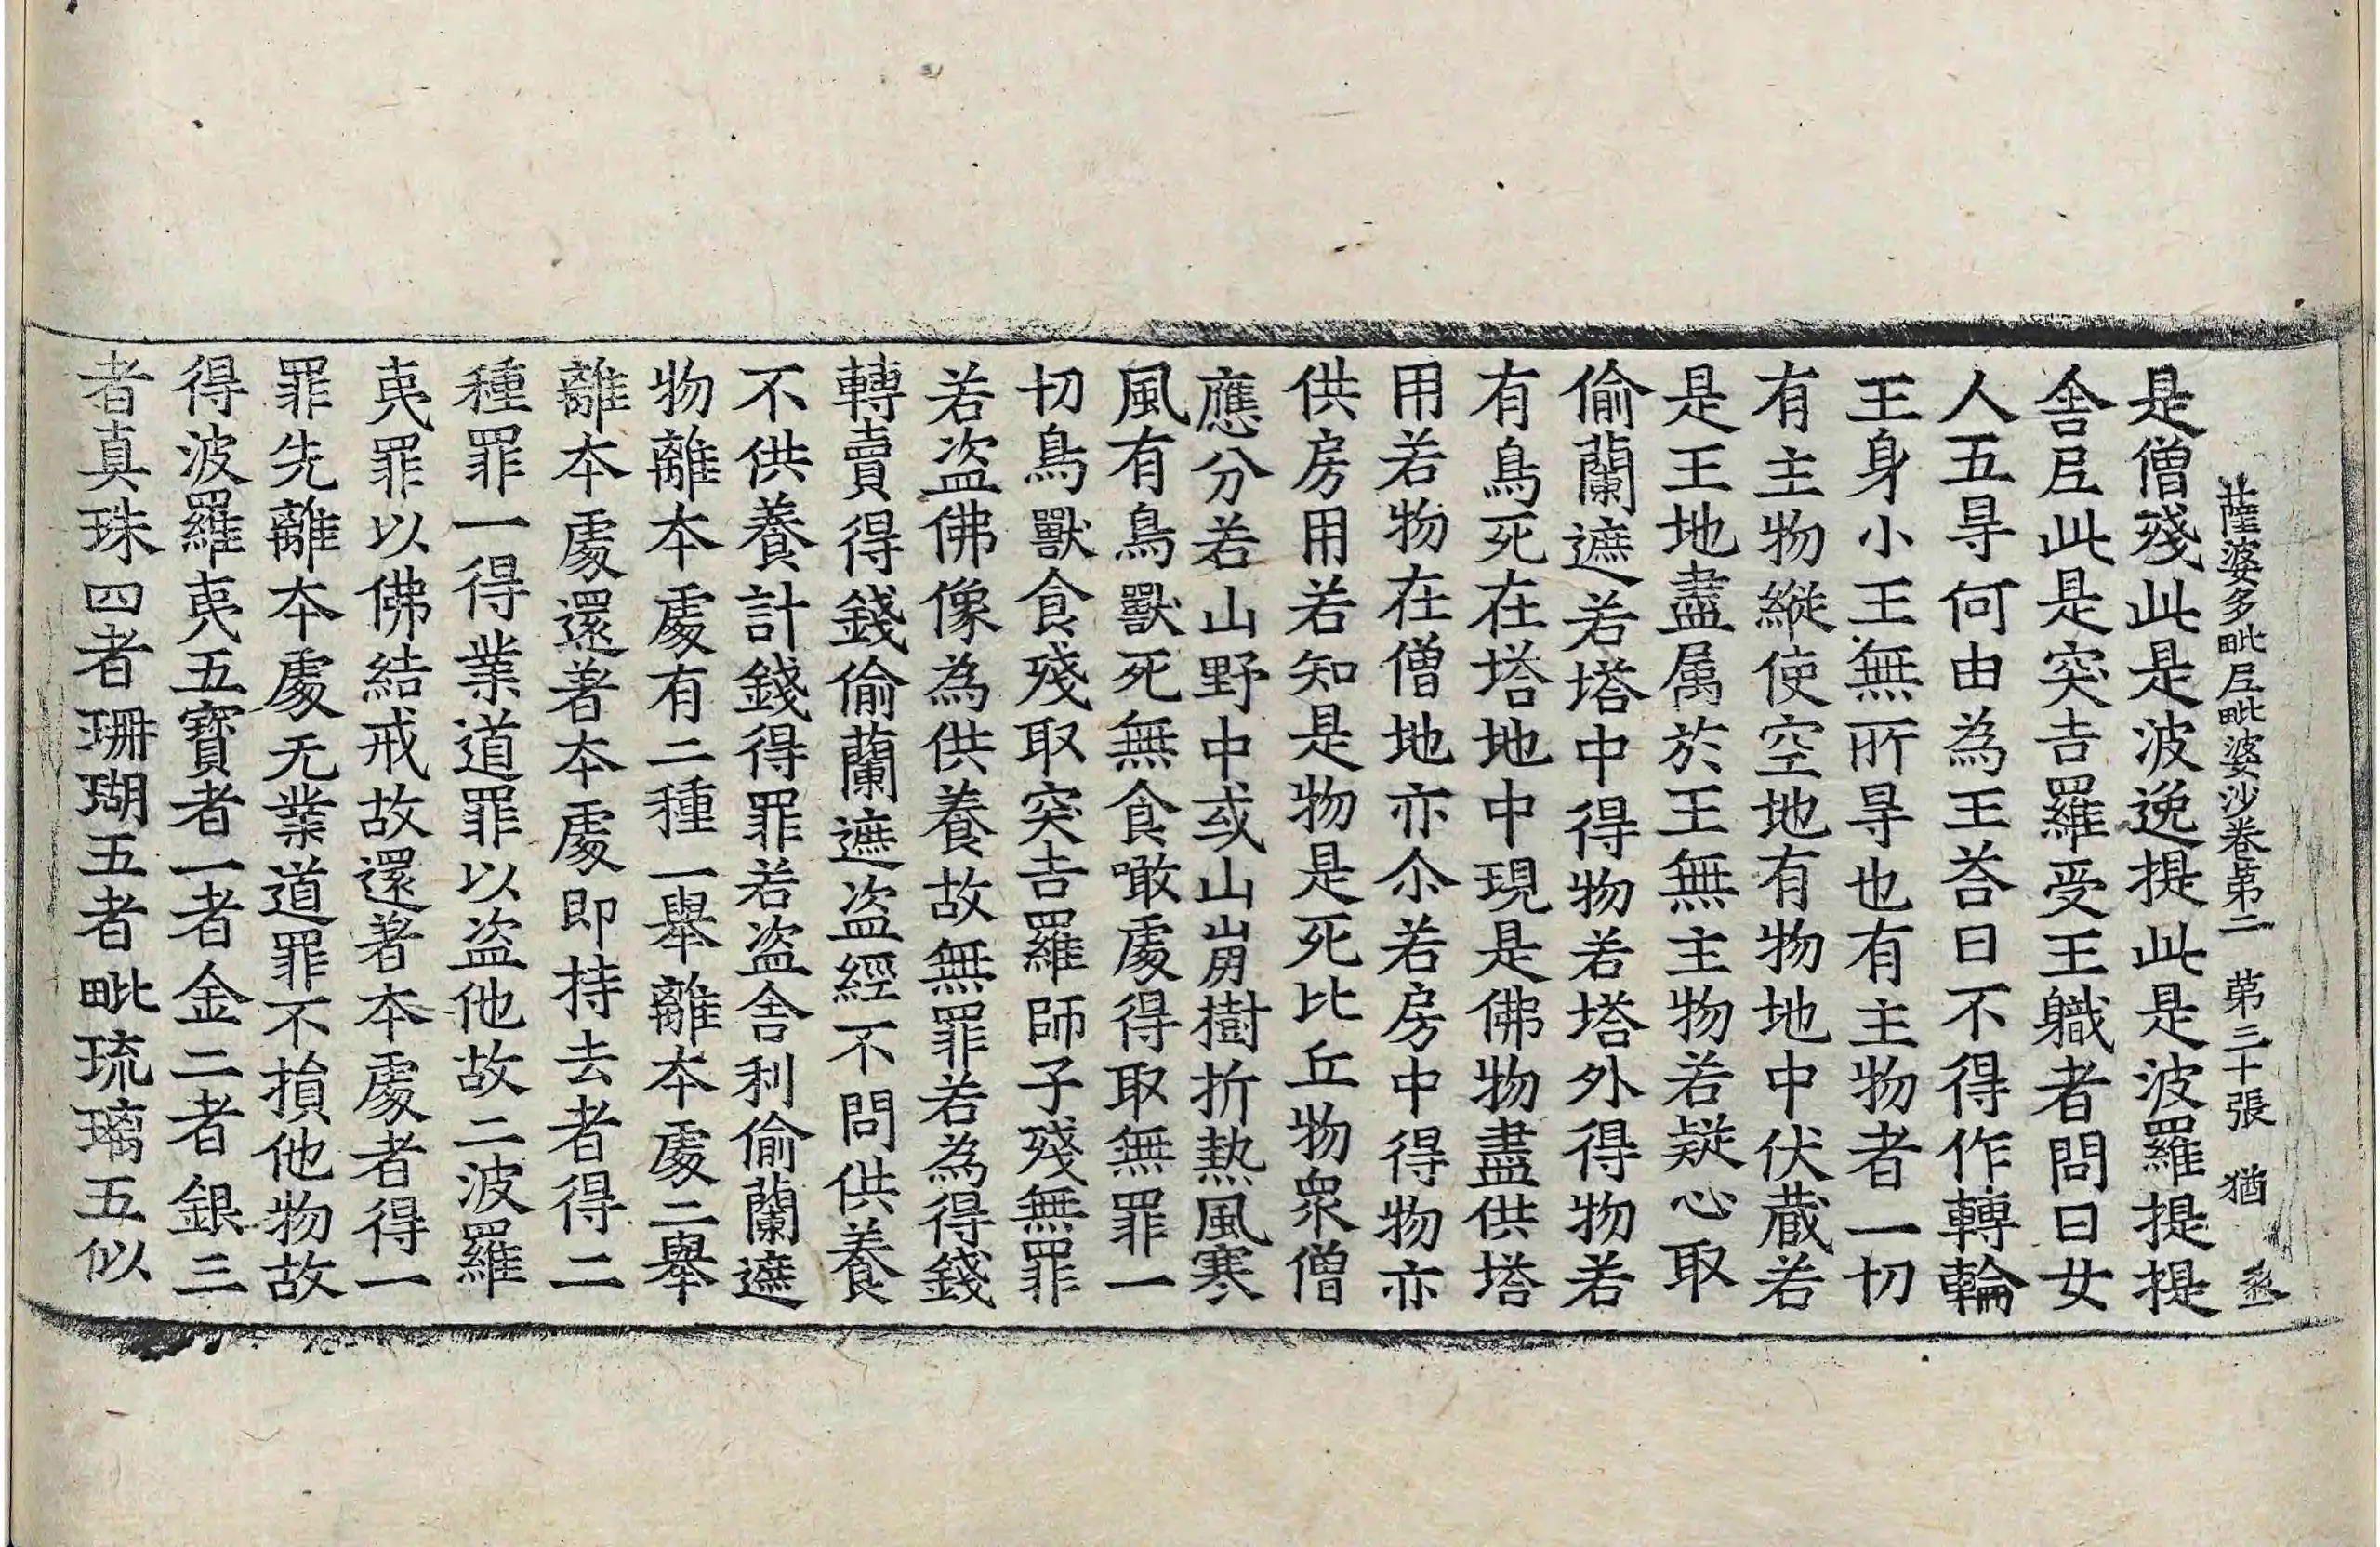 薩婆多毗尼毗婆沙卷第二 第三十張 猶 丞
是僧殘此是波逸提此是波羅提提
舍尼此是突吉羅受王職者問曰女
人五㝵何由為王荅曰不得作轉輪
王身小王無所㝵也有主物者一切
有主物縱使空地有物地中伏蔵若
是王地盡属於王無主物若疑心取
偷蘭遮若塔中得物若塔外得物若
有鳥死在塔地中現是佛物盡供塔
用若物在僧地亦尒若房中得物亦
供房用若知是物是死比丘物衆僧
應分若山野中或山崩樹折熱風寒
風有鳥獸死無食噉處得取無罪一
切鳥獸食殘取突吉羅師子殘無罪
若盗佛像為供養故無罪若為得錢
轉賣得錢偷蘭遮盗經不問供養
不供養計錢得罪若盗舍利偷蘭遮
物離本處有二種一舉離本處二舉
離本處還著本處即持去者得二
種罪一得業道罪以盗他故二波羅
夷罪以佛結戒故還著本處者得一
罪先離本處无業道罪不損他物故
得波羅夷五寳者一者金二者銀三
者真珠四者珊瑚五者毗琉璃五似